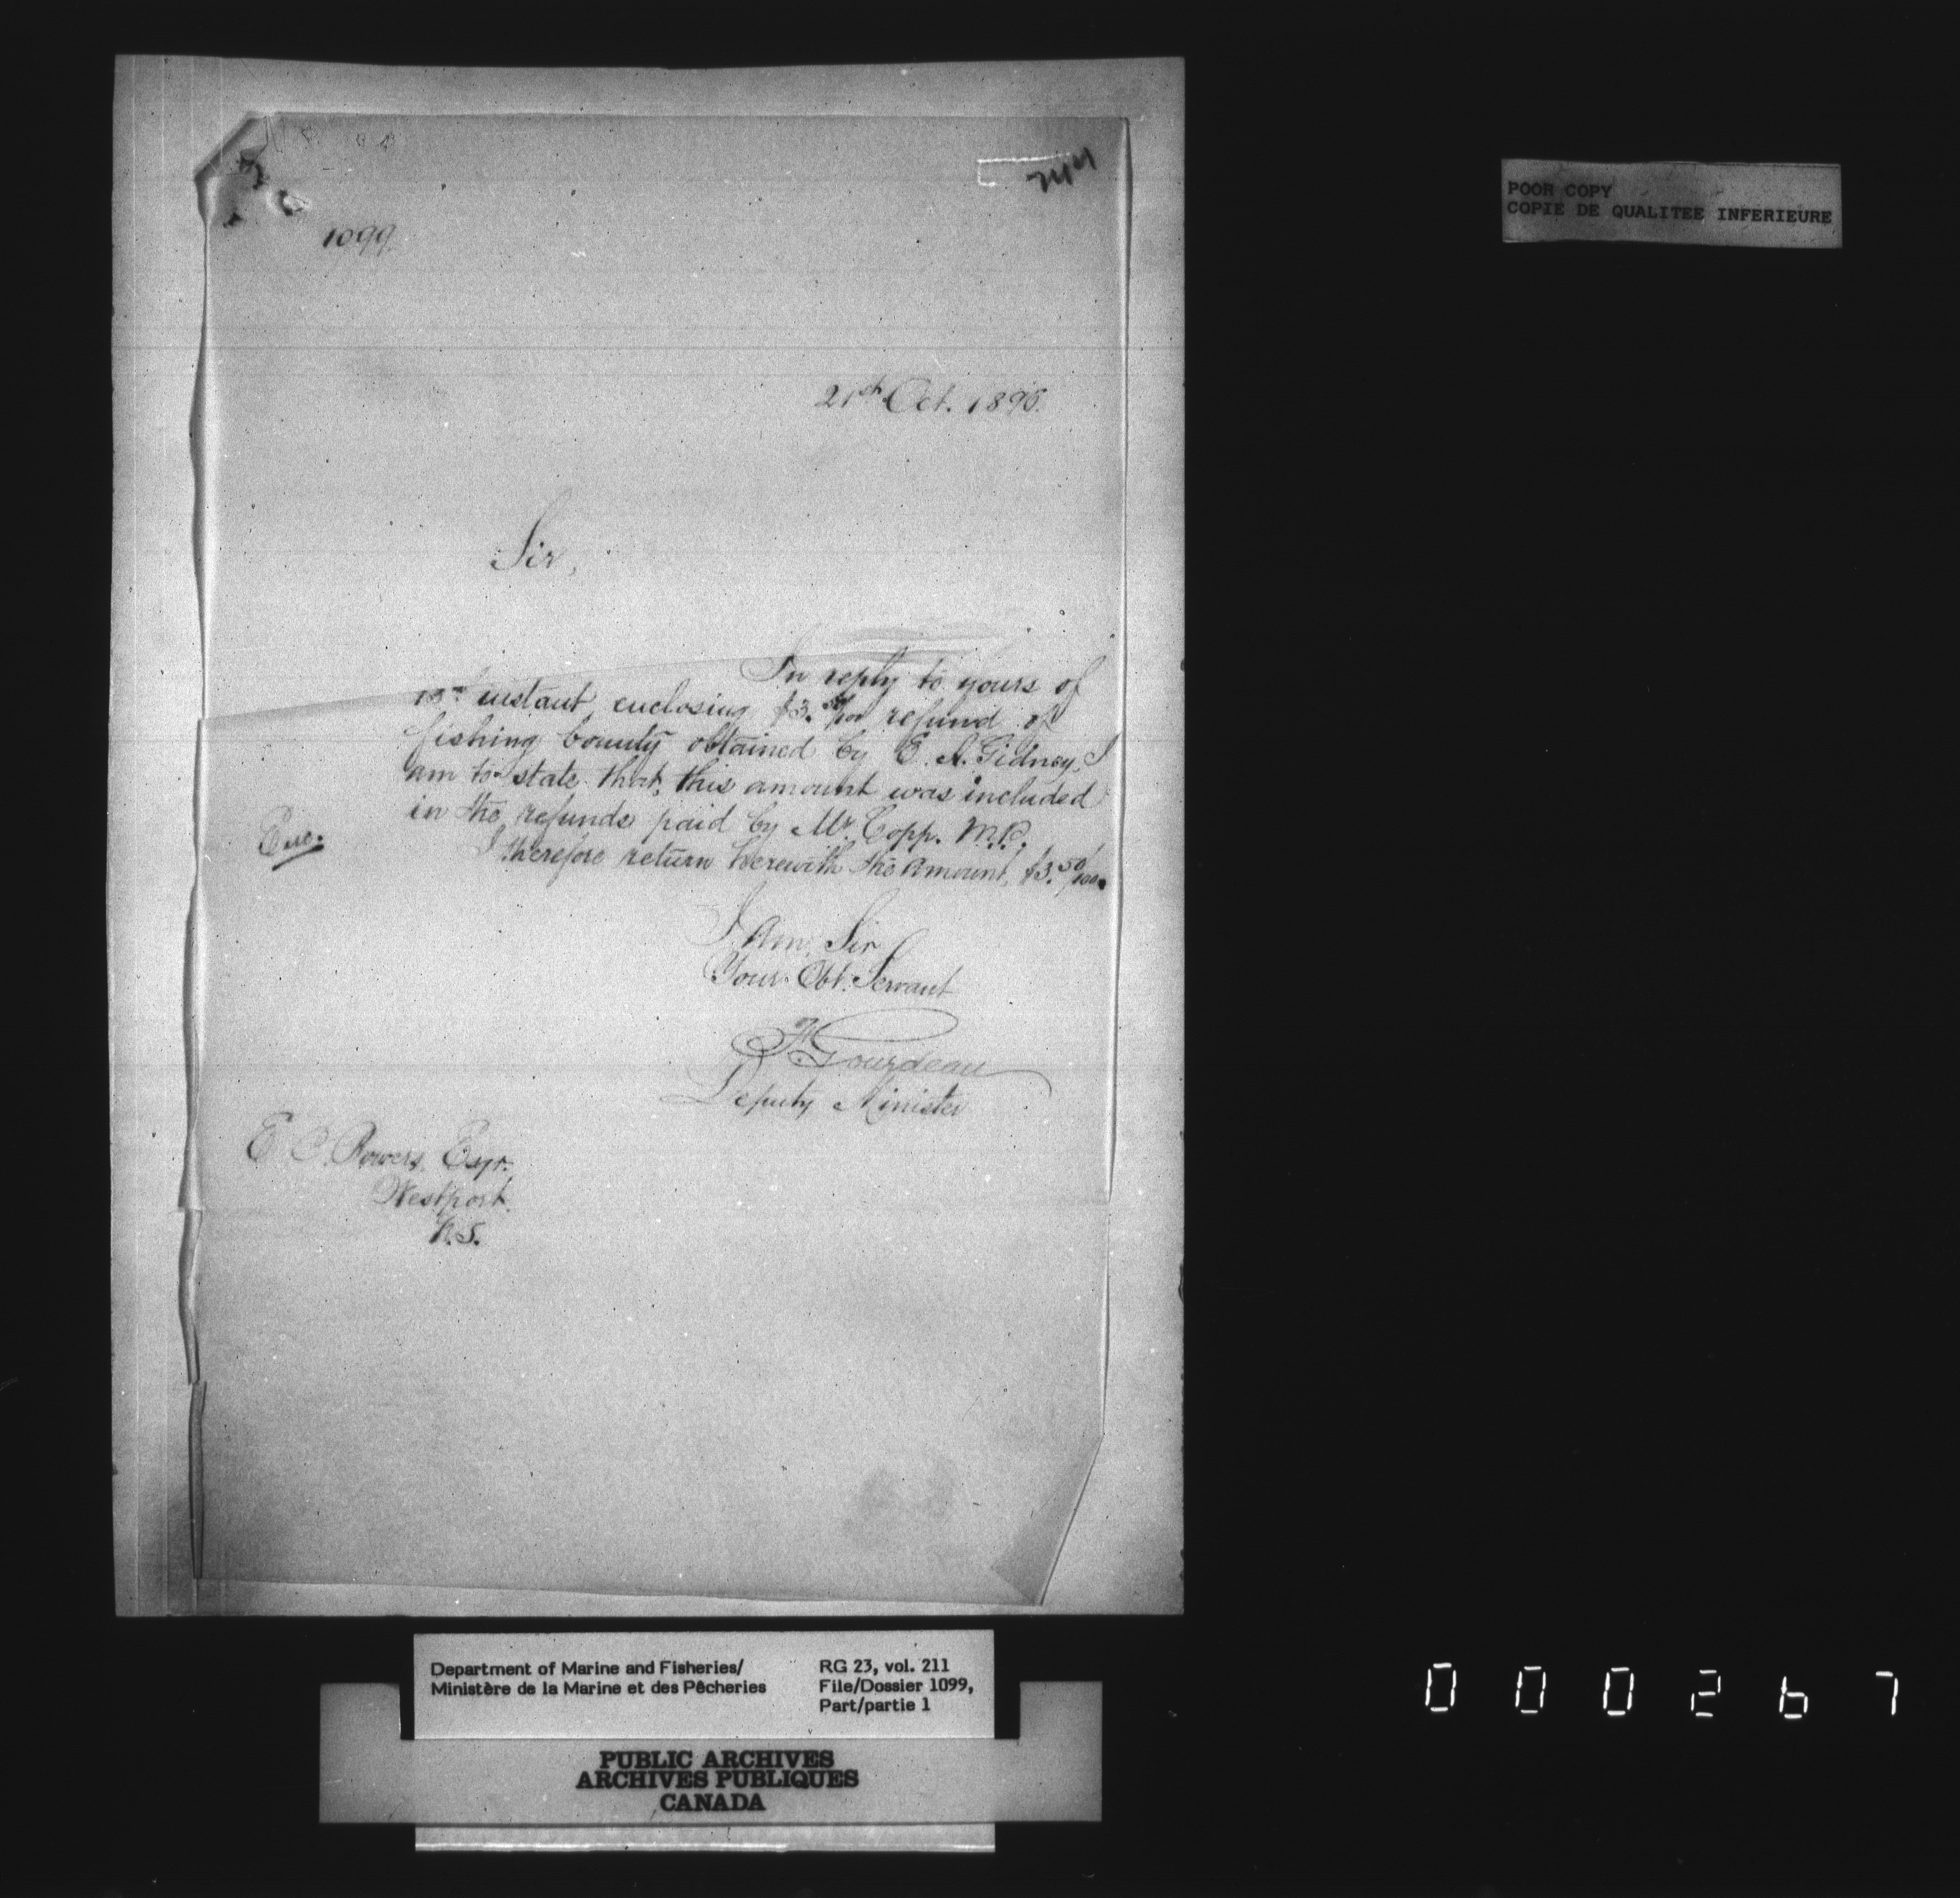 1099
21st Oct. 1896.
Sir,
In reply to yours of
13th instant, enclosing $3.50/100 refund of
fishing bounty obtained by E. A. Gidney, I
am to state that, this amount was included
in the refunds paid by Mr. Copp. M.P.
Enc.
I therefore return herewith the amount, $3.50/100.
I Am, Sir
Your Obt. Servant
F Gourdeau
Deputy Minister
E. C. Bowers, Esqr.
Westport.
N.S.
POOR COPY
COPIE DE QUALITEE INFERIEURE
Department of Marine and Fisheries/
Ministère de la Marine et des Pêcheries
RG 23, vol. 211
File/Dossier 1099,
Part/partie 1
PUBLIC ARCHIVES
ARCHIVES PUBLIQUES
CANADA
000267